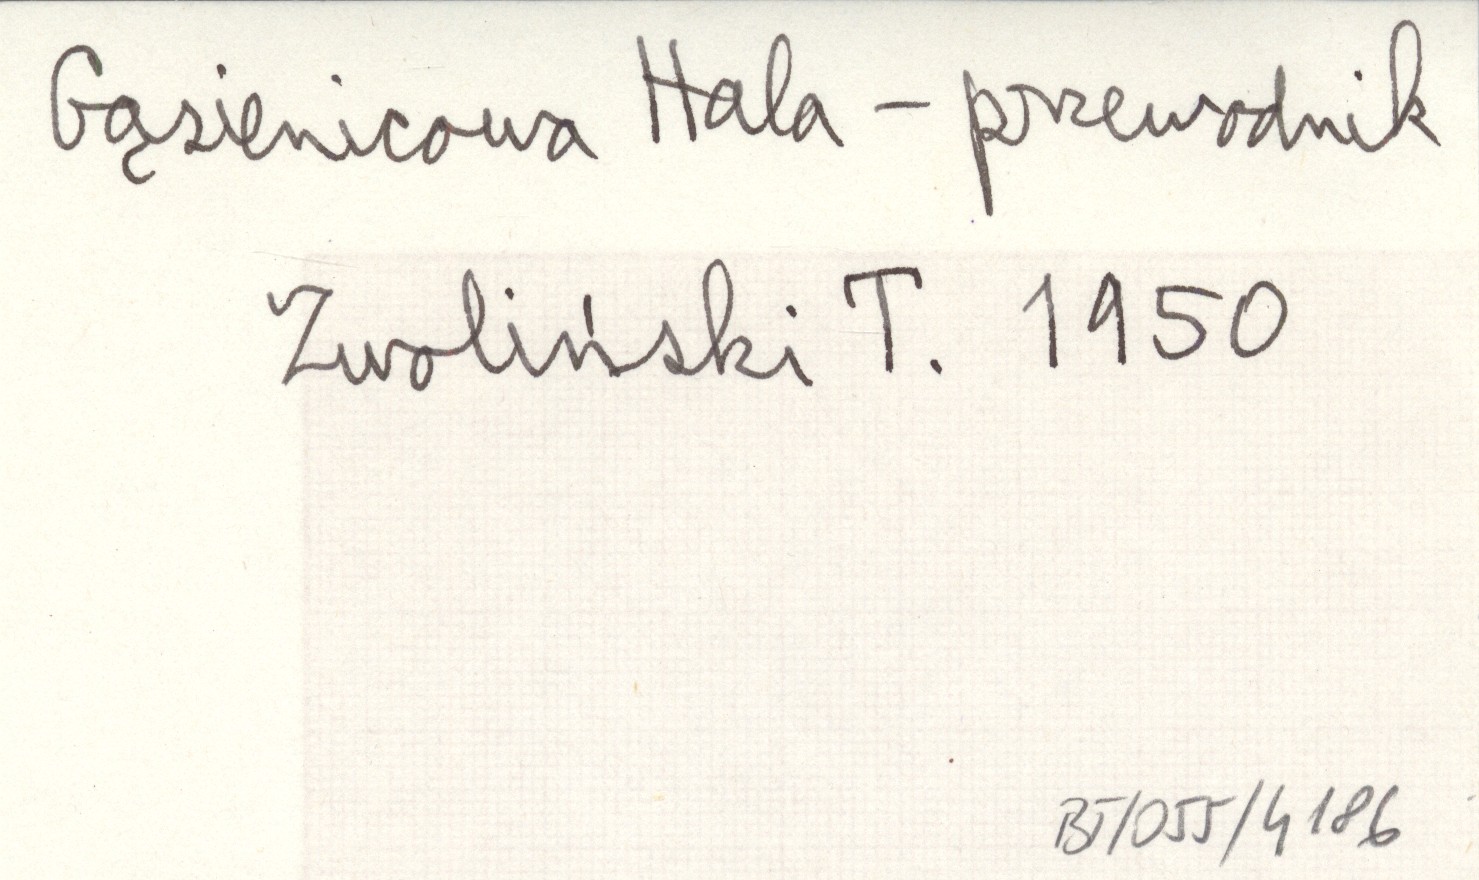 Gąsienicowa Hala - przewodnik
Zwoliński T. 1950
BJ/055/4186